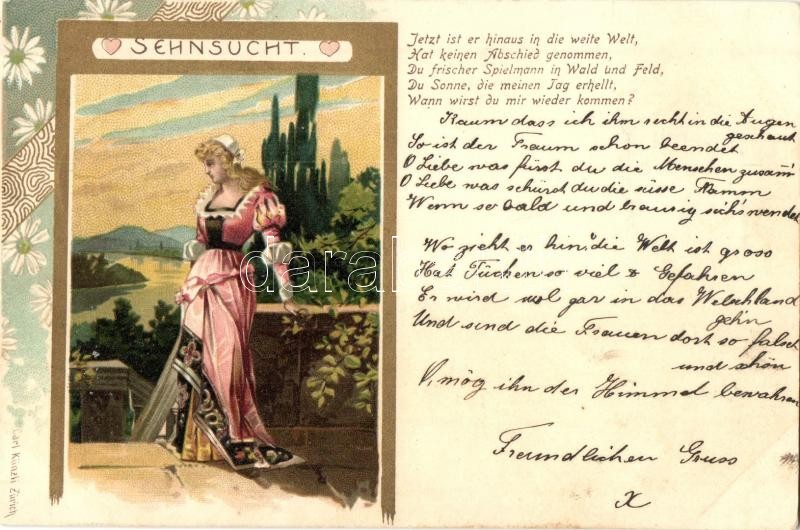 SEHNSUCHT.
Jetzt ist er hinaus in die weite Welt,
Hat keinen Abschied genommen,
Du frischer Spielmann in Wald und Feld,
Du Sonne, die meinen Tag erhellt,
Wann wirst du mir wieder kommen?
Kaum dass ich ihm recht in die Augen
geschaut
So ist der Traum schon beendet
O Liebe was führst du die Menschen zusamm'
O Liebe was schürst du die süsse Flamm
Wenn so bald und traurig sich's wendet
Wo zieht er hin, die Welt ist gross
Hat Tücken so viel & Gefahren
Er wird wol gar in das Welschland
geh'n
Und sind die Frauen dort so falsch
und schön
O, mög ihn der Himmel bewahren
Freundlichen Gruss
X
Carl Künzli Zürich
darabanth